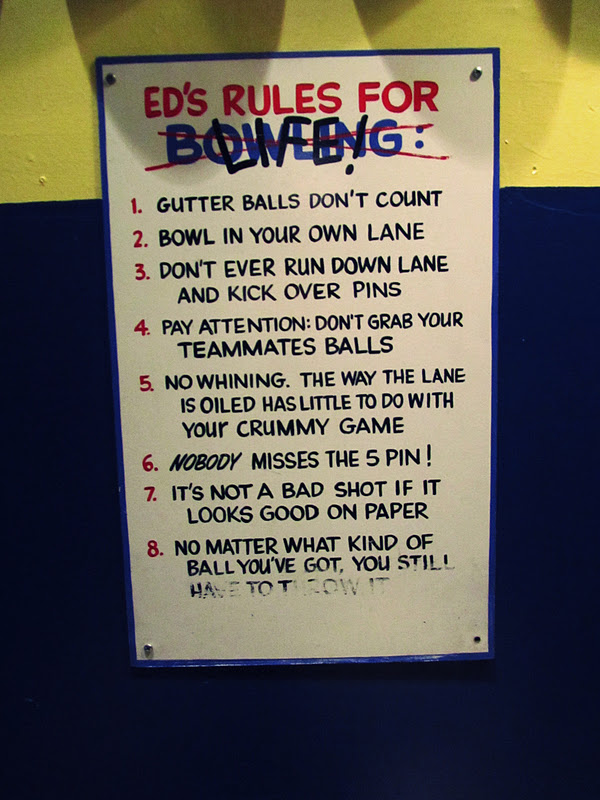 ED'S RULES FOR
BOWLING:
LIFE!
1. GUTTER BALLS DON'T COUNT
2. BOWL IN YOUR OWN LANE
3. DON'T EVER RUN DOWN LANE
AND KICK OVER PINS
4. PAY ATTENTION: DON'T GRAB YOUR
TEAMMATES BALLS
5. NO WHINING. THE WAY THE LANE
IS OILED HAS LITTLE TO DO WITH
YOUr CRUMMY GAME
6. NOBODY MISSES THE 5 PIN!
7. IT'S NOT A BAD SHOT IF IT
LOOKS GOOD ON PAPER
8. NO MATTER WHAT KIND OF
BALL YOU'VE GOT, YOU STILL
HAVE TO THROW IT